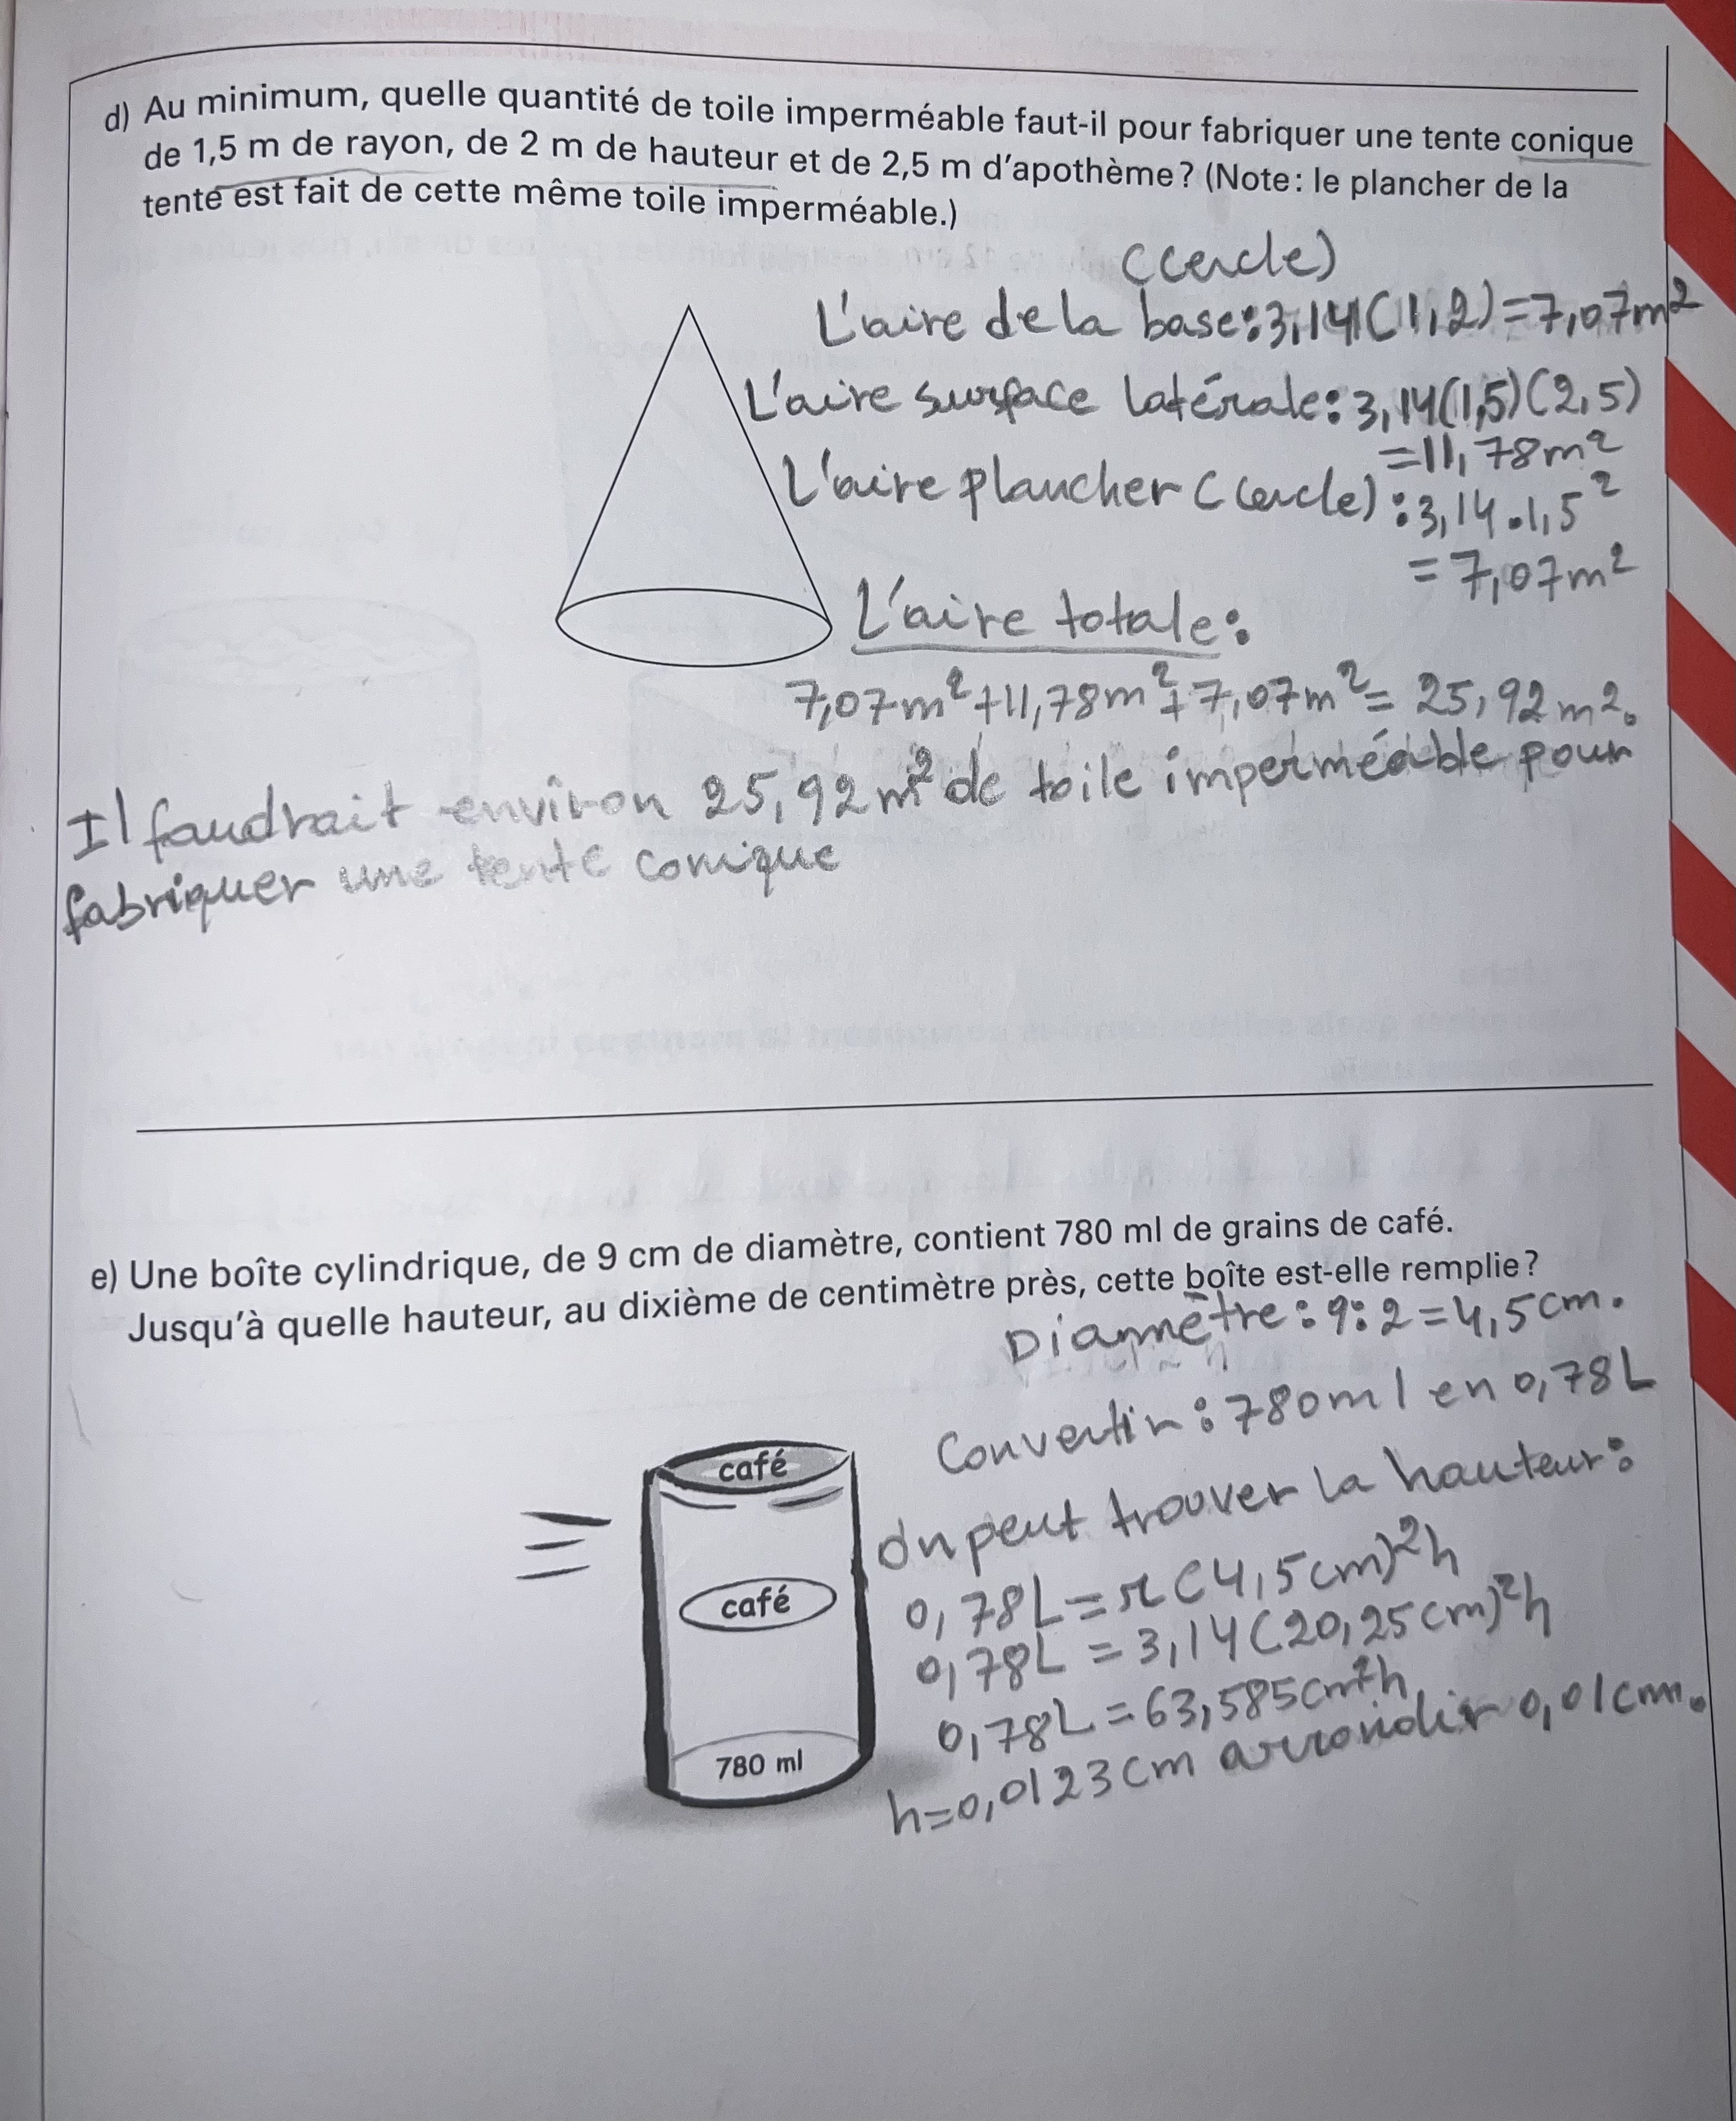 d) Au minimum, quelle quantité de toile imperméable faut-il pour fabriquer une tente conique
de 1,5 m de rayon, de 2 m de hauteur et de 2,5 m d'apothème? (Note: le plancher de la
tente est fait de cette même toile imperméable.)
(cercle)
L'aire de la base:3,14(1,2)=7,07m²
L'aire surface latérale:3,14(1,5)(2,5)
=11,78m²
L'aire plancher (cercle):3,14.1,5²
=7,07m²
L'aire totale:
7,07m²+11,78m²+7,07m²=25,92m².
Il faudrait environ 25,92m² de toile imperméable pour
fabriquer une tente conique
e) Une boîte cylindrique, de 9 cm de diamètre, contient 780 ml de grains de café.
Jusqu'à quelle hauteur, au dixième de centimètre près, cette boîte est-elle remplie?
Diamètre:9:2=4,5cm.
Convertir:780ml en 0,78L
On peut trouver la hauteur:
0,78L=π(4,5cm)²h
0,78L=3,14(20,25cm)²h
0,78L=63,585cm²h
h=0,0123cm arrondir 0,01cm.
café
café
780 ml